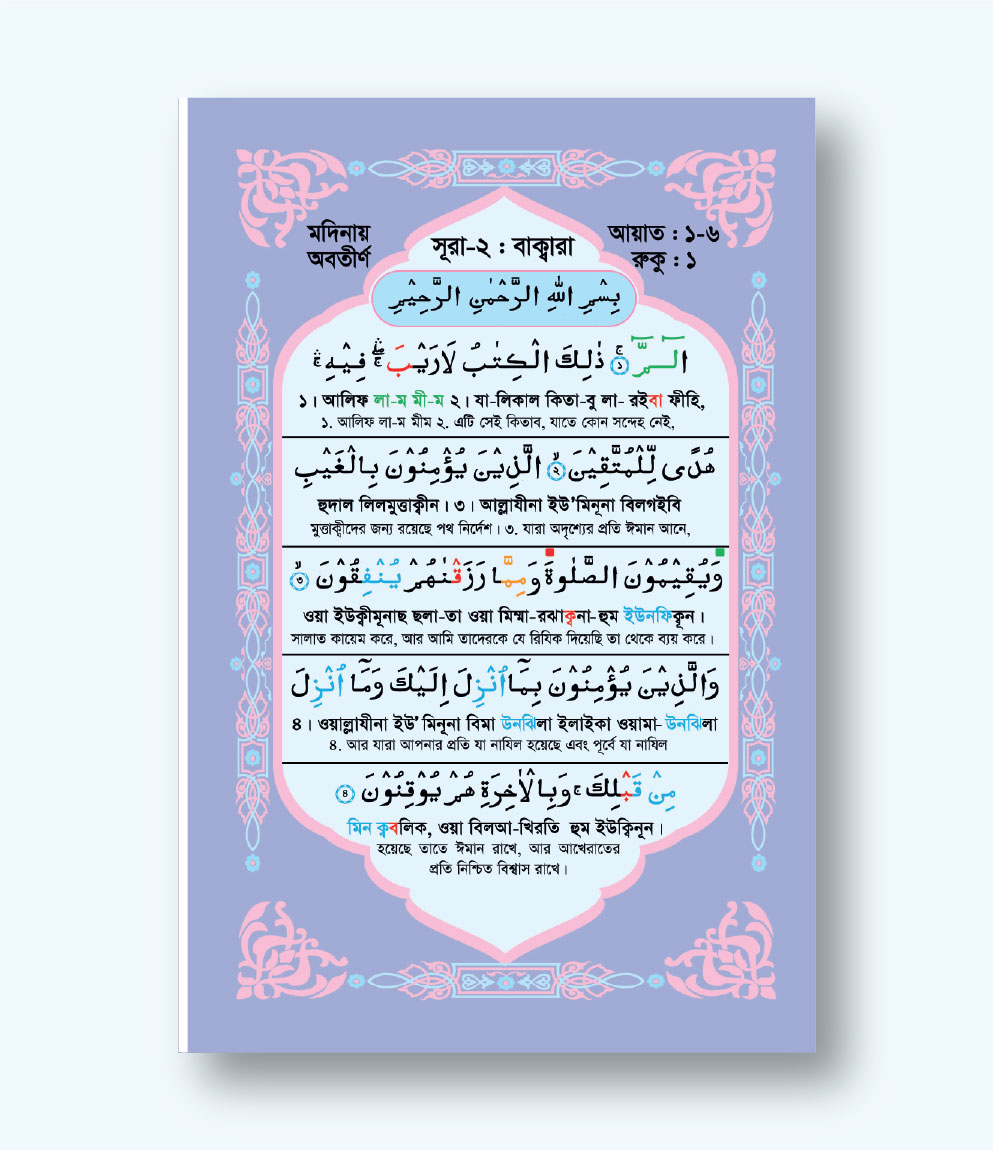 মদিনায়
অবতীর্ণ
সূরা-২ : বাক্বারা
আয়াত : ১-৬
রুকু : ১
بِسْمِ اللهِ الرَّحْمٰنِ الرَّحِيْمِ
الٓـمّٓ ۚ﴿۱﴾ ذٰلِكَ الْكِتٰبُ لَارَيْبَ ۛۖۚ فِيْهِ ۛۚ
১। আলিফ লা-ম মী-ম ২। যা-লিকাল কিতা-বু লা- রইবা ফীহি,
১. আলিফ লা-ম মীম ২. এটি সেই কিতাব, যাতে কোন সন্দেহ নেই,
هُدًى لِّلْمُتَّقِيْنَ ۙ﴿۲﴾ الَّذِيْنَ يُؤْمِنُوْنَ بِالْغَيْبِ
হুদাল লিলমুত্তাক্বীন। ৩। আল্লাযীনা ইউ'মিনূনা বিলগইবি
মুত্তাক্বীদের জন্য রয়েছে পথ নির্দেশ। ৩. যারা অদৃশ্যের প্রতি ঈমান আনে,
وَيُقِيْمُوْنَ الصَّلٰوةَ وَمِمَّا رَزَقْنٰهُمْ يُنْفِقُوْنَ ۙ﴿۳﴾
ওয়া ইউক্বীমূনাছ ছলা-তা ওয়া মিম্মা-রঝাক্বনা-হুম ইউনফিক্বূন।
সালাত কায়েম করে, আর আমি তাদেরকে যে রিযিক দিয়েছি তা থেকে ব্যয় করে।
وَالَّذِيْنَ يُؤْمِنُوْنَ بِمَآ اُنْزِلَ اِلَيْكَ وَمَآ اُنْزِلَ
৪। ওয়াল্লাযীনা ইউ' মিনূনা বিমা উনঝিলা ইলাইকা ওয়ামা- উনঝিলা
৪. আর যারা আপনার প্রতি যা নাযিল হয়েছে এবং পূর্বে যা নাযিল
مِنْ قَبْلِكَ ۚ وَبِالْاٰخِرَةِ هُمْ يُوْقِنُوْنَ ﴿۴﴾
মিন ক্ববলিক, ওয়া বিলআ-খিরতি হুম ইউক্বিনূন।
হয়েছে তাতে ঈমান রাখে, আর আখেরাতের
প্রতি নিশ্চিত বিশ্বাস রাখে।